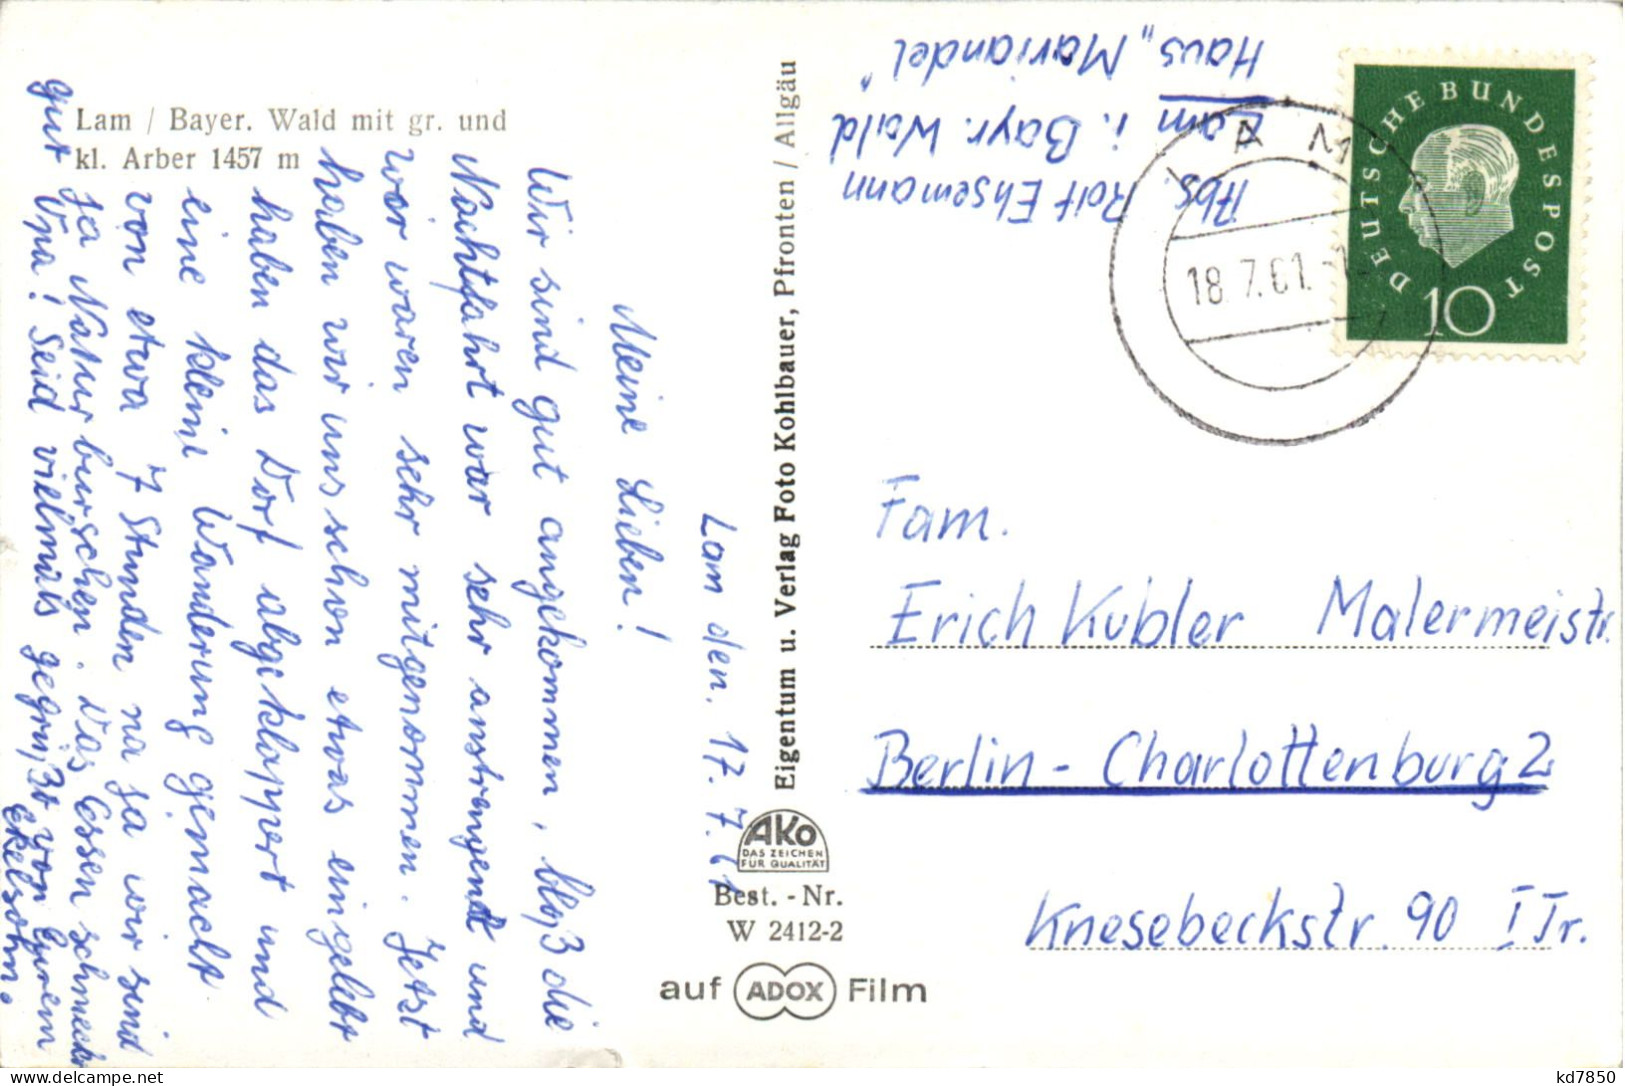 Lam / Bayer. Wald mit gr. und
kl. Arber 1457 m
Lam den. 17. 7. 61
Meine Lieben!
Wir sind gut angekommen, bloß die
Nachtfahrt war sehr anstrengend und
wir waren sehr mitgenommen. Jetzt
haben wir uns schon etwas eingelebt
haben das Dorf abgeklappert und
eine kleine Wanderung gemacht
von etwa 7 Stunden na ja wir sind
ja Naturburschen. Das Essen schmeckt
gut Opa! Seid vielmals gegrüßt von Eurem
Ekelsohn.
Eigentum u. Verlag Foto Kohlbauer, Pfronten / Allgäu
AKO
DAS ZEICHEN
FÜR QUALITÄT
Best. - Nr.
W 2412-2
auf ADOX Film
Abs. Rolf Ehsemann
Lam i. Bayr. Wald
Haus „Mariandel"
LAM
18.7.61
DEUTSCHE BUNDESPOST
10
Fam.
Erich Kubler Malermeistr.
Berlin - Charlottenburg 2
Knesebeckstr. 90 I Tr.
kd7850